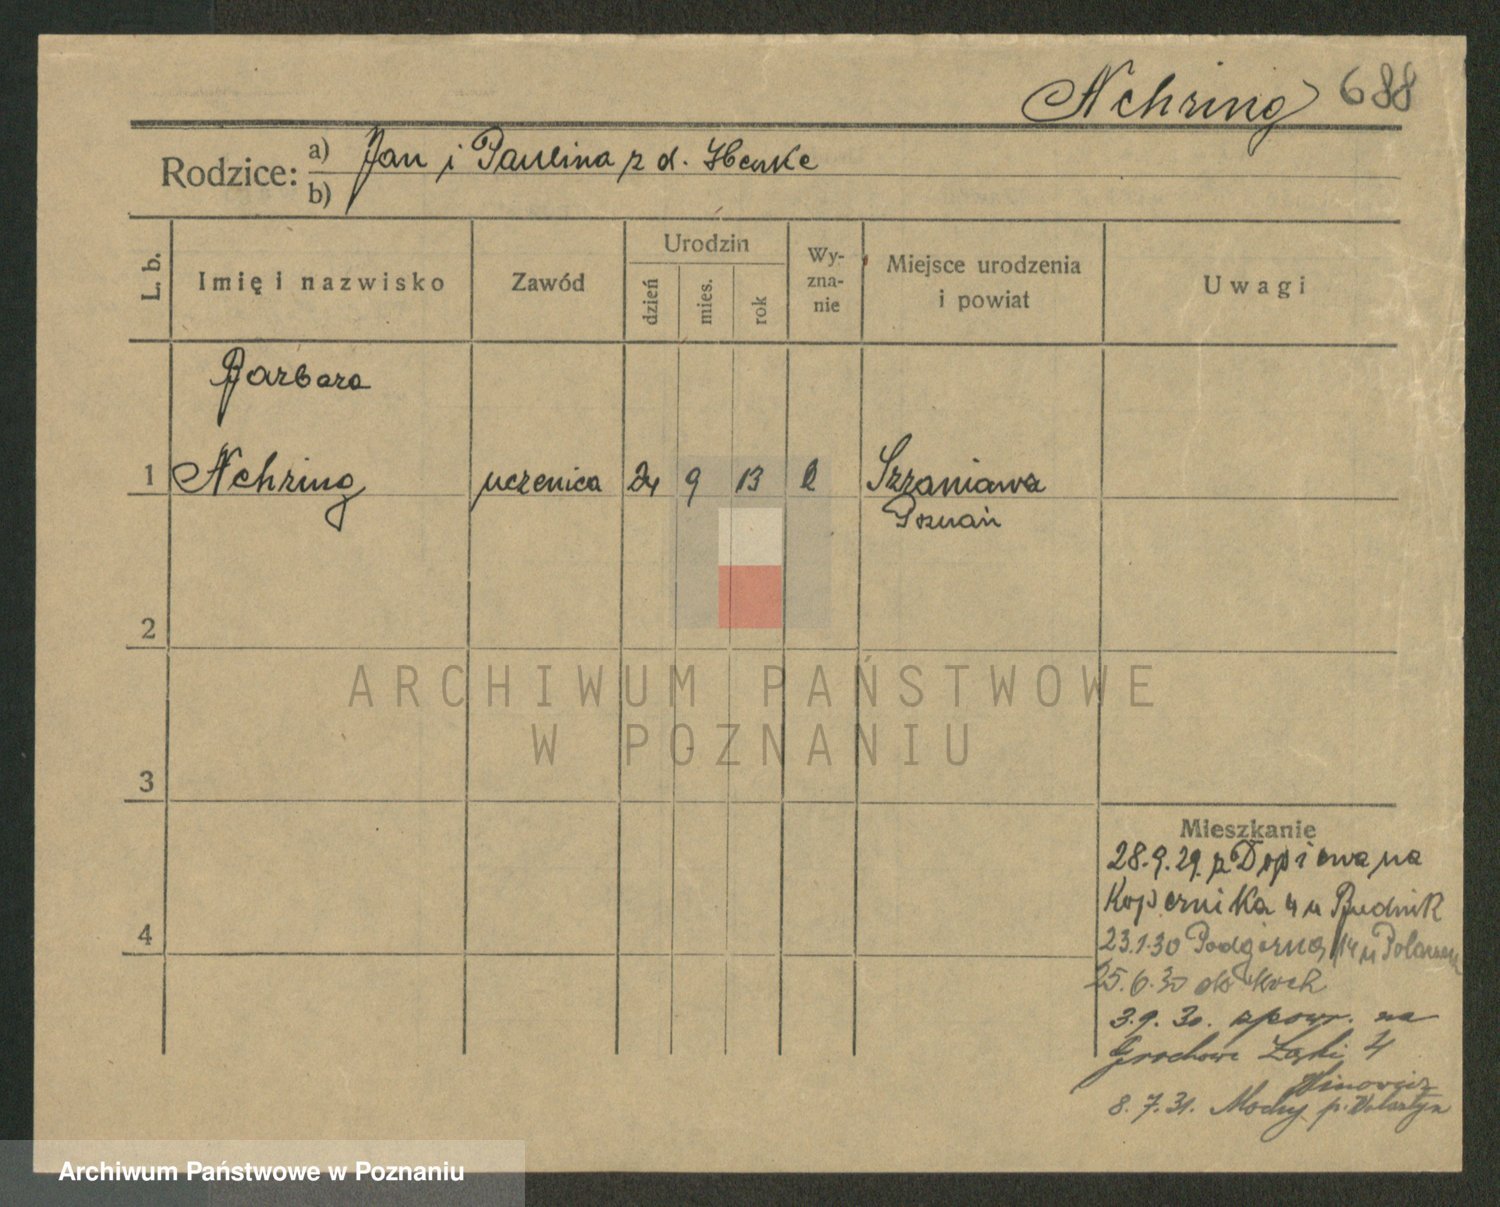 Nehring 688
Rodzice: a) Jan i Paulina z d.
b)
L. b. Imię i nazwisko Zawód Urodzin dzień mies. rok Wy-zna-nie Miejsce urodzenia i powiat Uwagi
Barbara
1 Nehring uczenica 24 9 13 Szreniawa
Poznań
2
ARCHIWUM PAŃSTWOWE
W POZNANIU
3
Mieszkanie
28.9.29. z Dopiewa na
Kopernika 4 u Budnik
4
23.1.30 Podgórna 14 u
25.6.30 do Koch
3.9.30. zpowr. na
Grochowe Łąki 4
8.7.31. Mochy p. Wolsztyn
Archiwum Państwowe w Poznaniu